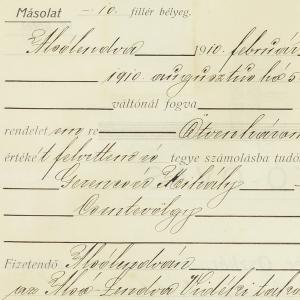 Másolat - 10. fillér bélyeg.
Alsólendva 1910. február
1910. augusztus hó 5
váltónál fogva
rendelet                     Ötvenhárom
értékét                     tegye számolásba tudó
Ferencsák Mihály
Csentevölgy
Fizetendő Alsólendván
az Alsó-Lendva Vidéki taka